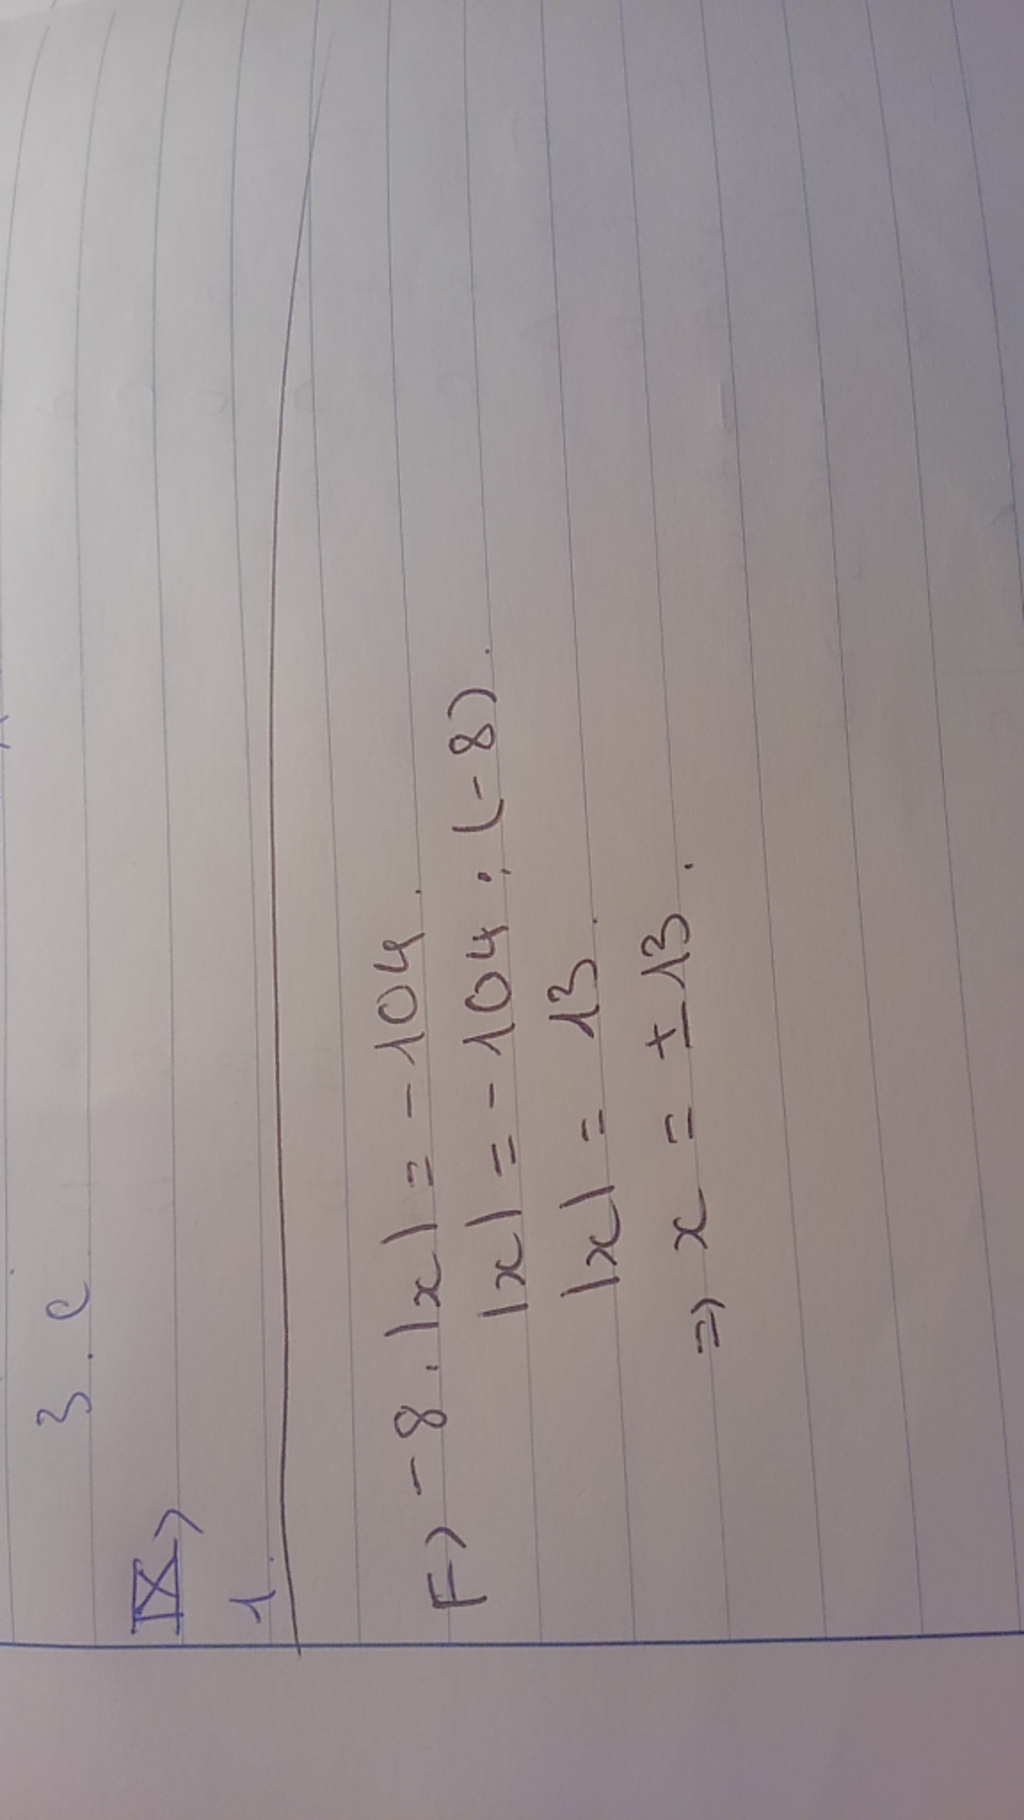 3. c
IX>
1.
F> -8.|x| = -104.
|x| = -104 : (-8).
|x| = 13.
=> x = ±13.